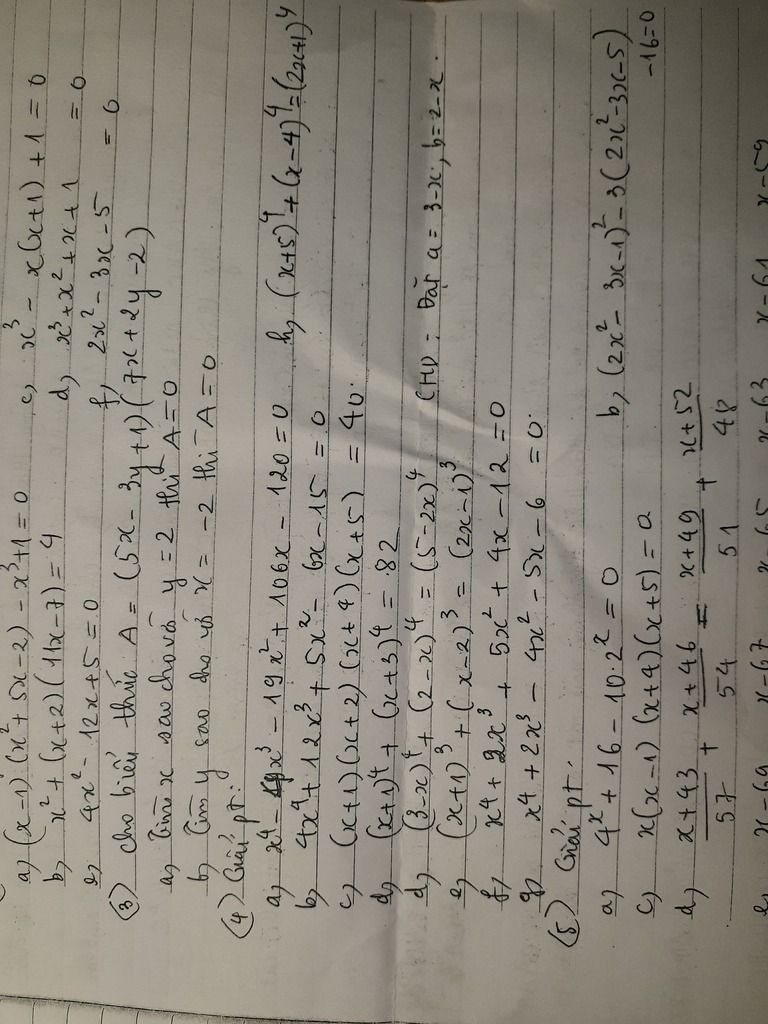 a, (x-1)(x²+5x-2)-x³+1=0 c, x³-x(x+1)+1=0
b, x²+(x+2)(11x-7)=4 d, x³+x²+x+1=0
e, 4x²-12x+5=0 f, 2x²-3x-5=0
(3) cho biểu thức A=(5x-3y+1)(7x+2y-2)
a, Tìm x sao cho với y=2 thì A=0
b, Tìm y sao cho với x=-2 thì A=0
(4) Giải pt:
a, x⁴-4x³-19x²+106x-120=0 h, (x+5)⁴+(x-4)⁴=(2x+1)⁴
b, 4x⁴+12x³+5x²-6x-15=0
c, (x+1)(x+2)(x+4)(x+5)=40.
d, (x+1)⁴+(x+3)⁴=82
d, (3-x)⁴+(2-x)⁴=(5-2x)⁴ (HD: Đặt a=3-x; b=2-x.
e, (x+1)³+(x-2)³=(2x-1)³
f, x⁴+2x³+5x²+4x-12=0
g, x⁴+2x³-4x²-5x-6=0.
(5) Giải pt.
a, 4ˣ+16-10.2ˣ=0 b, (2x²-3x-1)²-3(2x²-3x-5)-16=0
c, x(x-1)(x+4)(x+5)=
d, x+43/57 + x+46/54 = x+49/51 + x+52/48
e, x-69 x-67 x-65 x-63 x-61 x-59